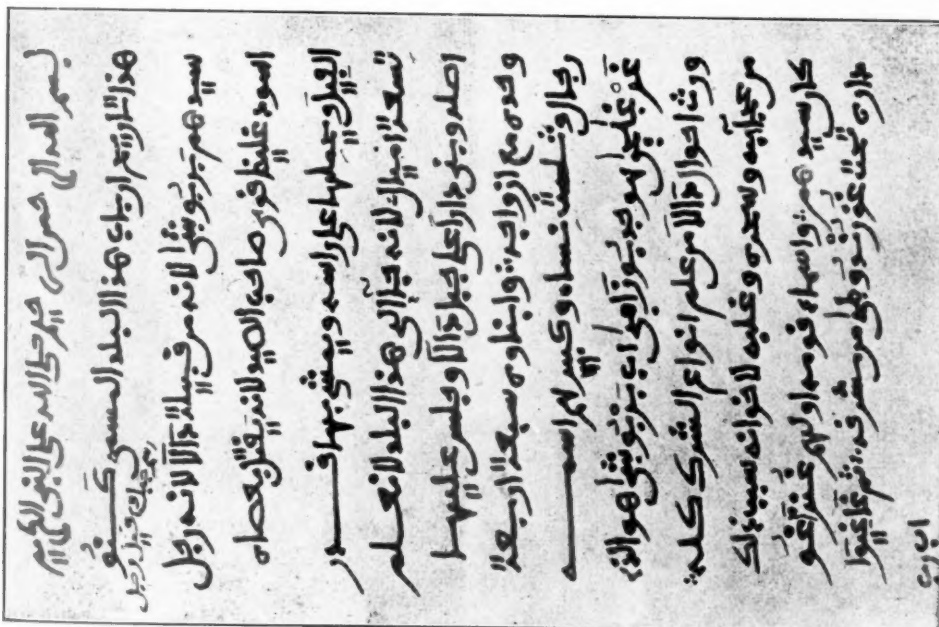 بسم الله الرحمن الرحيم صلى الله على النبي الكريم
هذا تاريخ ارباب هذا البلد المسمى كنو
سيدهم بربوشى لانه من قبيلة دالا لانه رجل
اسود غليظ قوي صاحب الصيد لانه يقتل بعصاه
الفيل ويحملها على راسه ويمشى بها قدر
تسعة اميال لانه جاء الى هذا البلد لا نعلم
اصله وبنى دارا على جبل دالا وجلس عليها
وحده مع ازواجه وابناوه سبعة اربعة
رجال وثلثة نساء وكبيرهم اسمه
هو جد اب بربوشى هو الذى
ورث احوال دالا من علم انواع الشرك كله
من عجابه وسحره وغلبه لاخوانه سبب ذلك
كان سيدهم واسماء قومه اولهم
داره تحت من شرقه ثم غاغيوا
اب رب